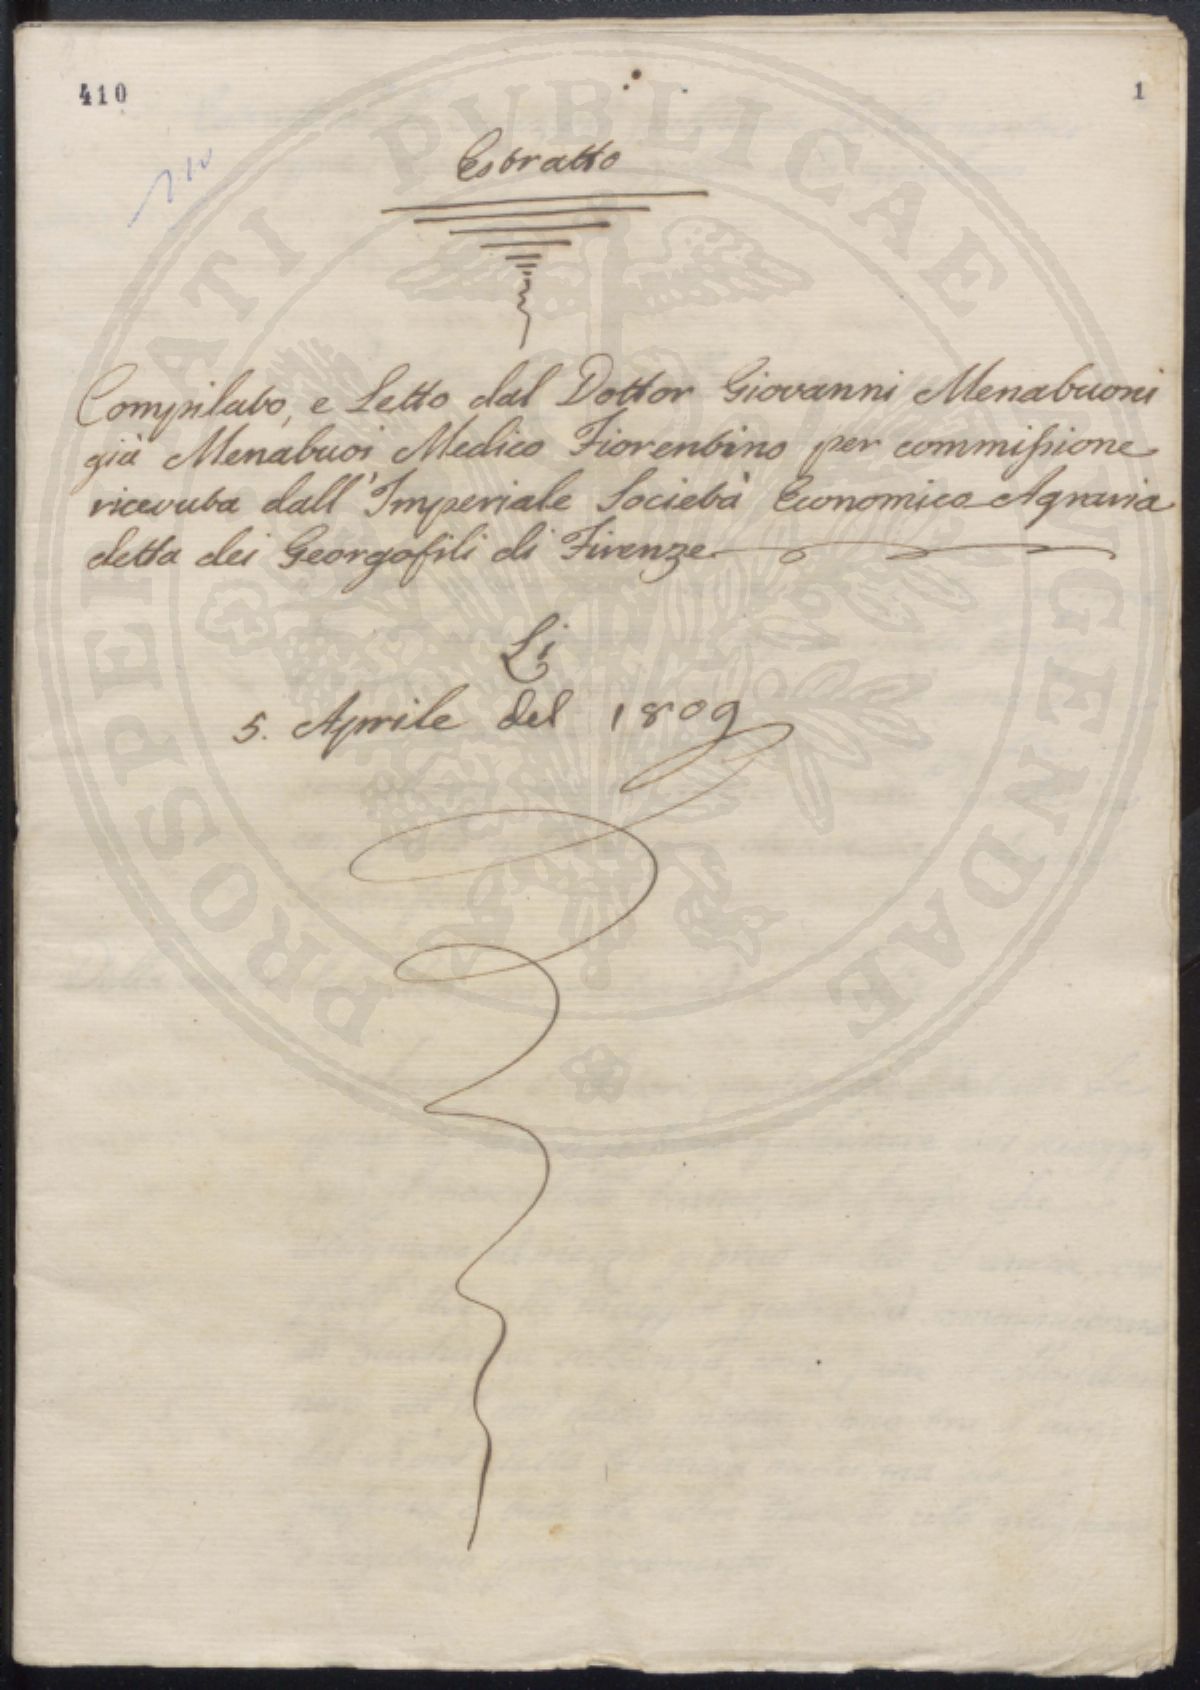 410
1
210
Estratto
Compilato, e Letto dal Dottor Giovanni Menabuoni
già Menabuoi Medico Fiorentino per commissione
ricevuta dall'Imperiale Società Economico-Agraria
detta dei Georgofili di Firenze
Li
5. Aprile del 1809
PROSPERITATI PUBLICAE AUGENDAE